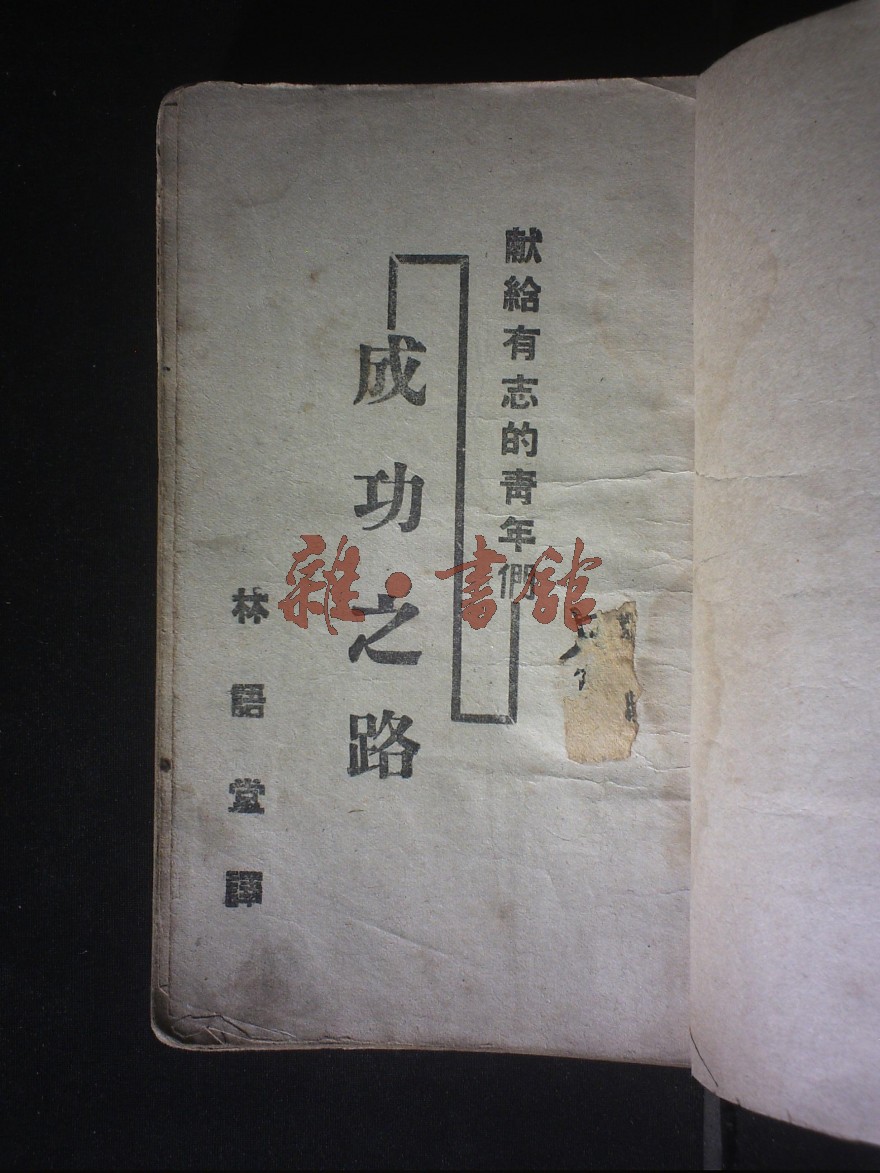 献給有志的青年們
成功之路
林語堂譯
雜·書館